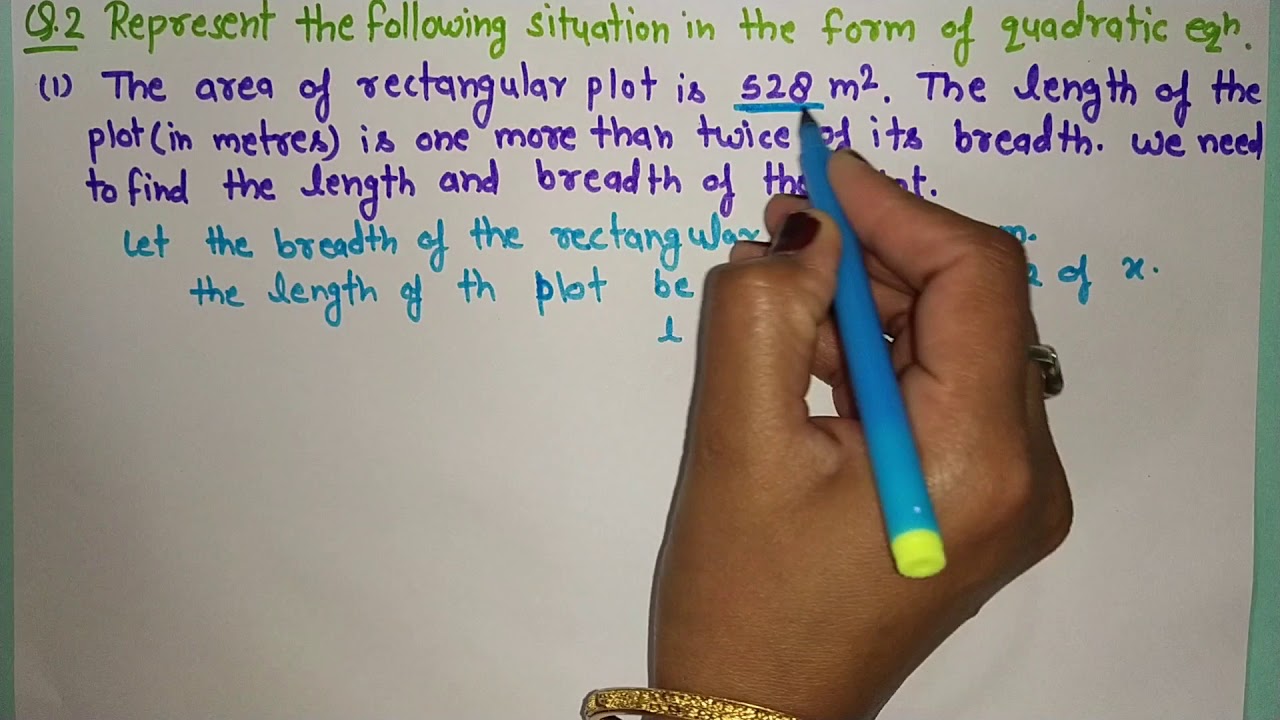 Q.2 Represent the following situation in the form of quadratic eqn.
(1) The area of rectangular plot is 528 m². The length of the
plot (in metres) is one more than twice of its breadth. We need
to find the length and breadth of the
Let the breadth of the rectangular m.
the length of th plot be of x.
l